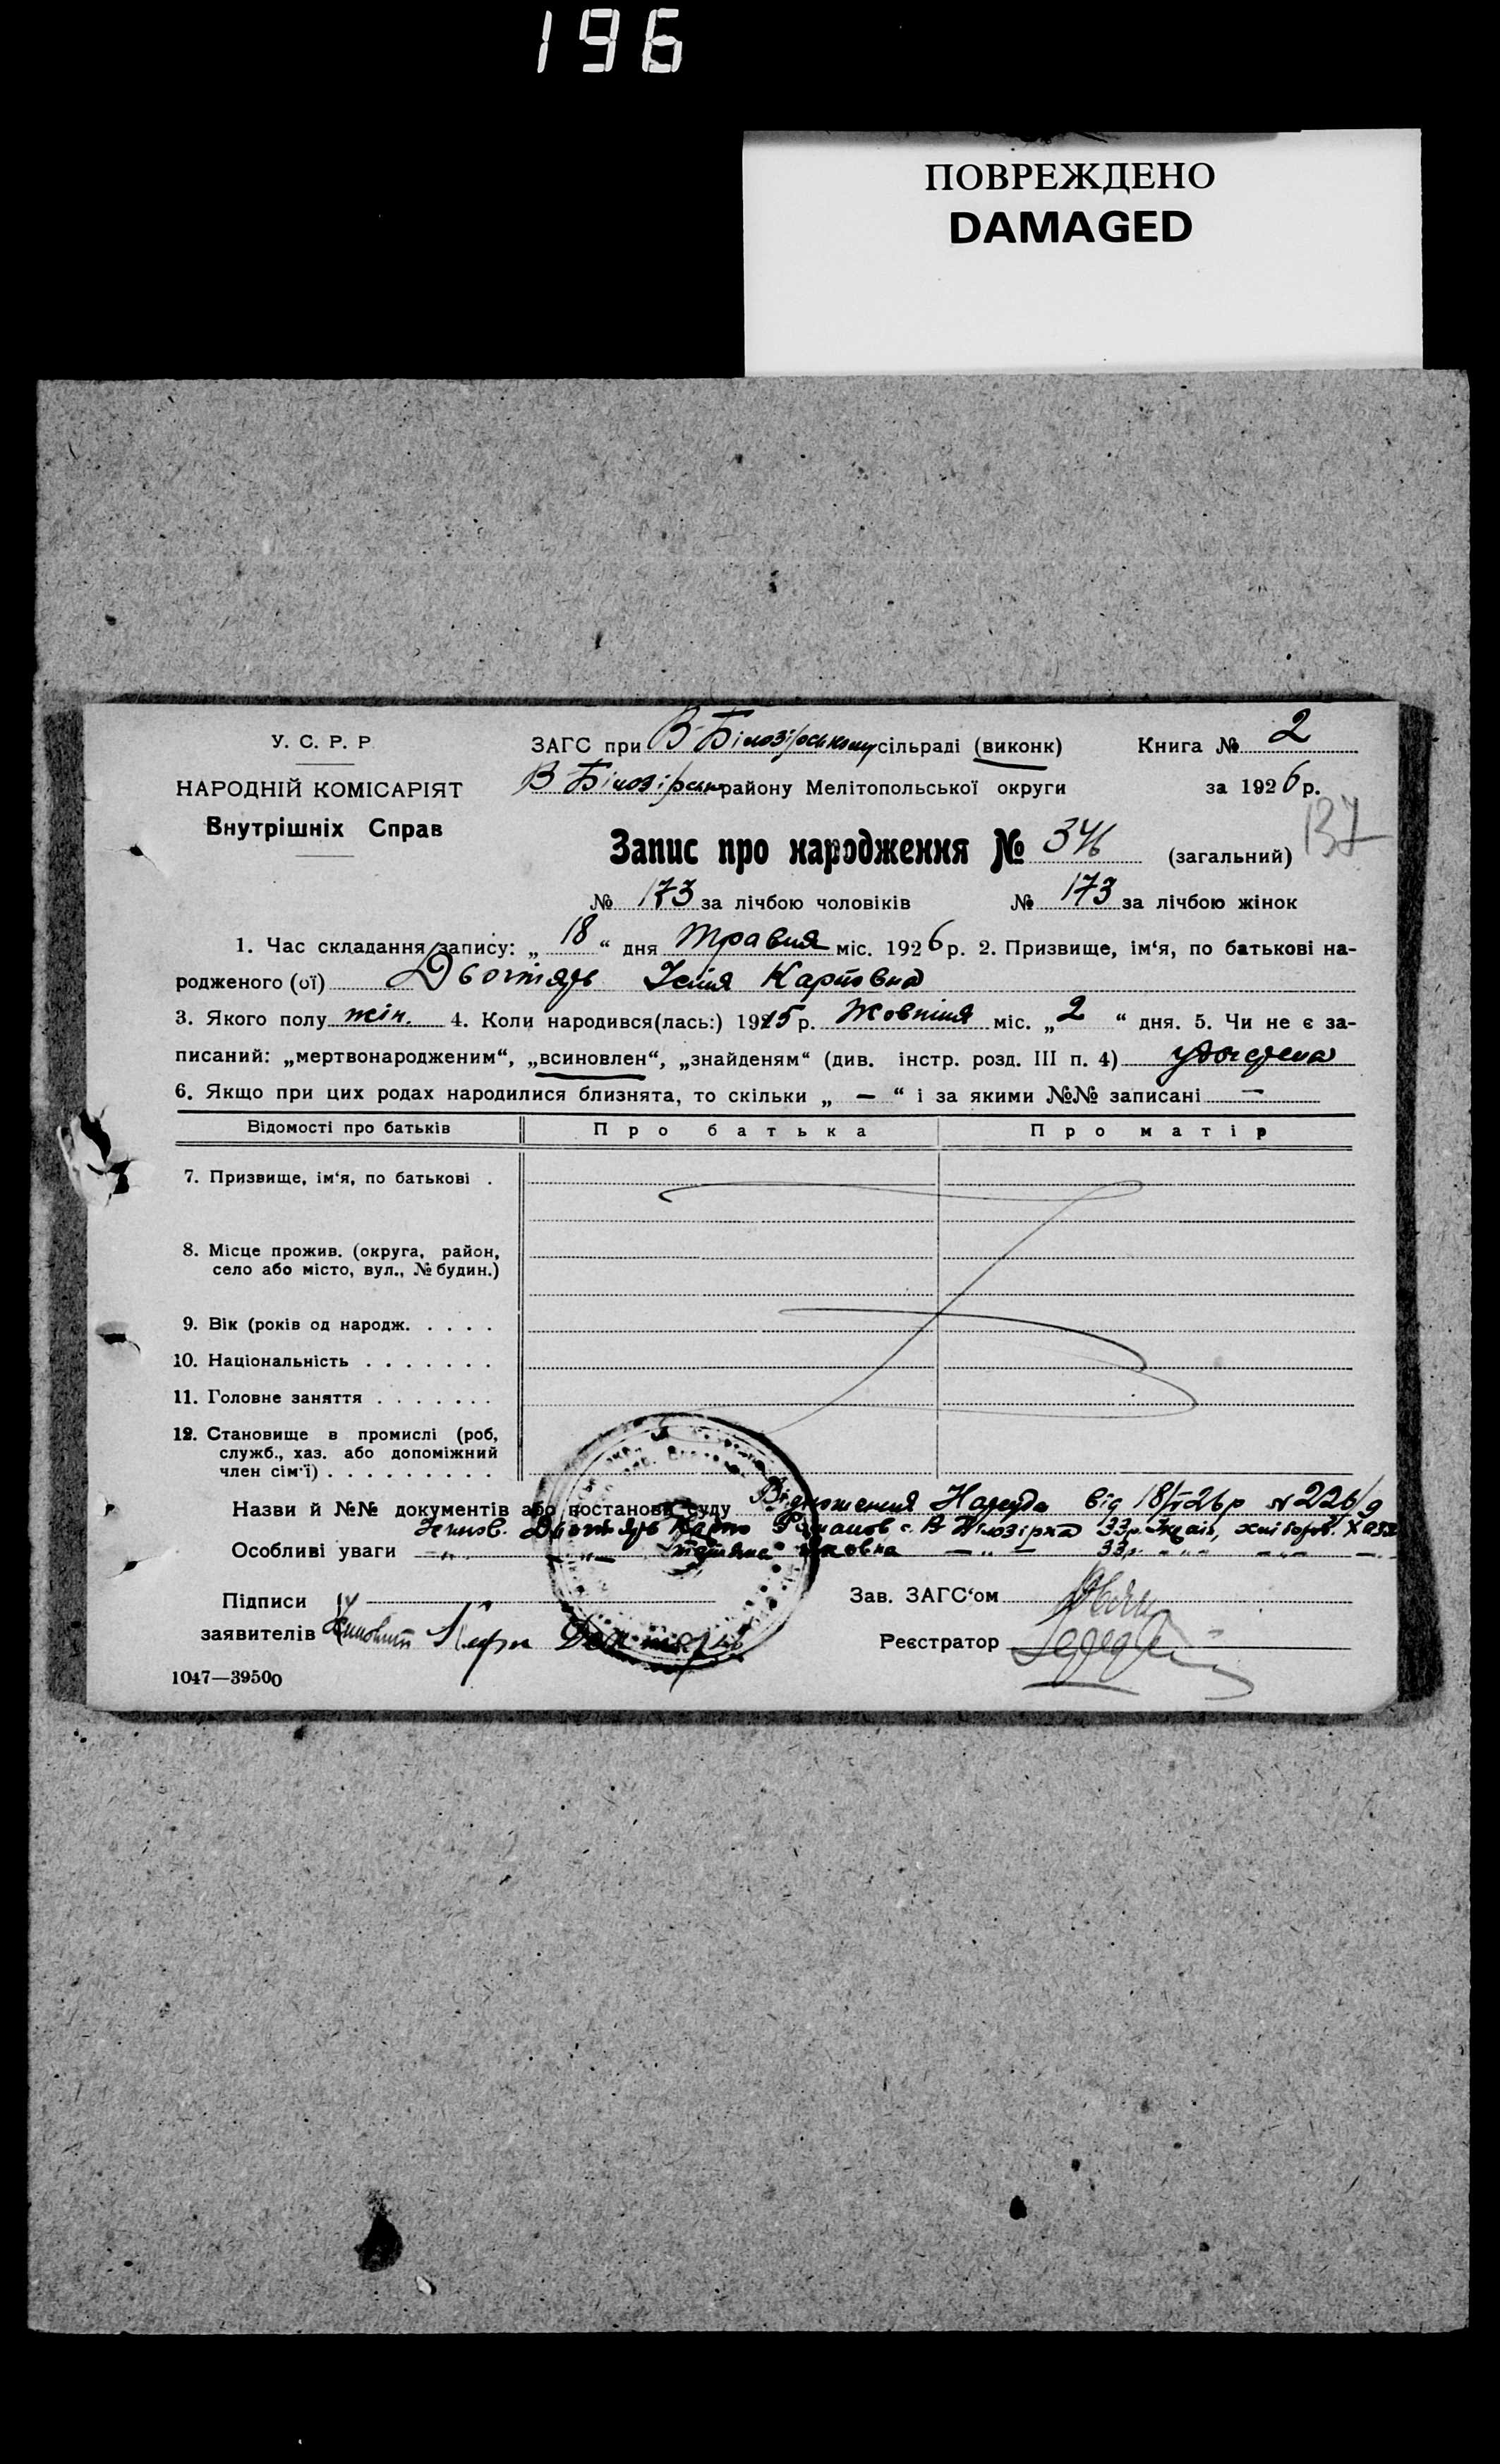 196
ПОВРЕЖДЕНО
DAMAGED
У. С. Р. Р.
НАРОДНІЙ КОМІСАРІЯТ
Внутрішніх Справ
ЗАГС при В-Білозірському сільраді (виконк)
Книга № 2
В-Білозірськ району Мелітопольської округи
за 1926 р.
137
Запис про народження № 346 (загальний)
№ 173 за лічбою чоловіків № 173 за лічбою жінок
1. Час складання запису: „ 18 “ дня Травня міс. 1926 р. 2. Призвище, ім‘я, по батькові на-
родженого (ої) Карповна
3. Якого полу жін. 4. Коли народився(лась:) 1915 р. Жовтня міс. „ 2 “ дня. 5. Чи не є за-
писаний: „мертвонародженим“, „всиновлен“, „знайденям“ (див. інстр. розд. III п. 4)
6. Якщо при цих родах народилися близнята, то скільки „ — “ і за якими №№ записані —
Відомості про батьків Про батька Про матір
7. Призвище, ім‘я, по батькові .
8. Місце прожив. (округа, район,
село або місто, вул., № будин.)
9. Вік (років од народж. . . . .
10. Національність . . . . . . .
11. Головне заняття . . . . . . .
12. Становище в промислі (роб,
служб., хаз. або допоміжний
член сім‘ї) . . . . . . . . .
Назви й №№ документів або постанови суду Відношення Нарсуда від 18/V 26 р № 226/д
Карпо Романов с. В Білозірка 33 р.
Особливі уваги — „ — „ — Татяна — „ — 33 р. — „ —
Підписи
заявителів
Зав. ЗАГС‘ом
Реєстратор
1047—39500